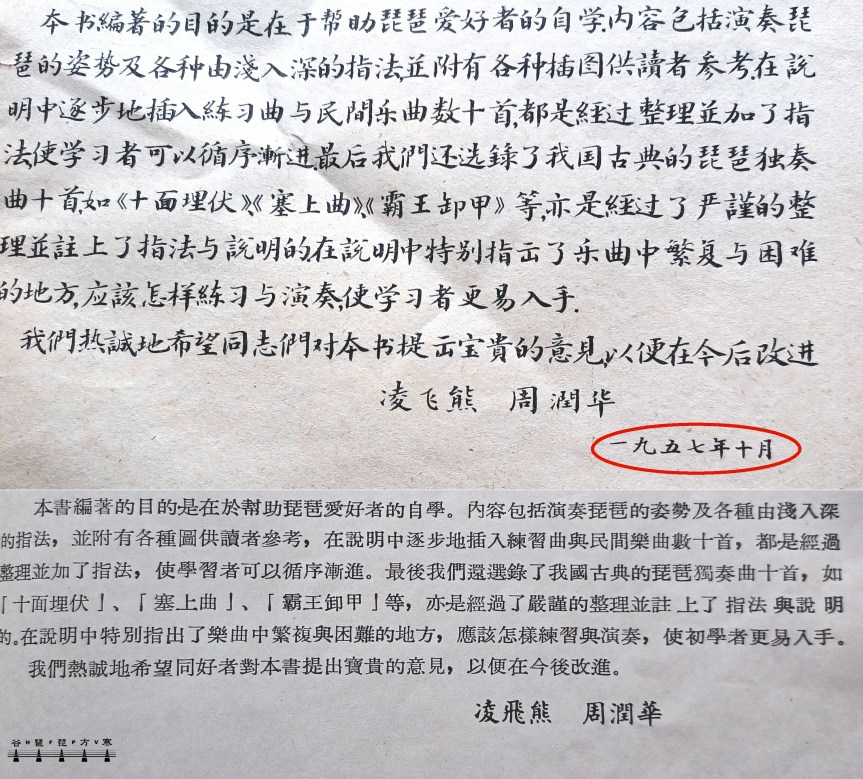 本书編著的目的是在于帮助琵琶爱好者的自学.内容包括演奏琵
琶的姿势及各种由淺入深的指法,並附有各种插图供讀者參考.在說
明中逐步地插入練习曲与民間乐曲数十首,都是經过整理並加了指
法,使学习者可以循序漸进.最后我們还选錄了我国古典的琵琶独奏
曲十首,如《十面埋伏》、《塞上曲》、《霸王卸甲》等,亦是經过了严謹的整
理並註上了指法与說明的.在說明中特别指出了乐曲中繁复与困难
的地方,应該怎样練习与演奏,使学习者更易入手.
我們热誠地希望同志們对本书提出宝貴的意見,以便在今后改进
凌飞熊 周潤华
一九五七年十月
本書編著的目的是在於幫助琵琶愛好者的自學。內容包括演奏琵琶的姿勢及各種由淺入深
的指法，並附有各種圖供讀者參考，在說明中逐步地插入練習曲與民間樂曲數十首，都是經過
整理並加了指法，使學習者可以循序漸進。最後我們還選錄了我國古典的琵琶獨奏曲十首，如
「十面埋伏」、「塞上曲」、「霸王卸甲」等，亦是經過了嚴謹的整理並註上了指法與說明
的。在說明中特別指出了樂曲中繁複與困難的地方，應該怎樣練習與演奏，使初學者更易入手。
我們熱誠地希望同好者對本書提出寶貴的意見，以便在今後改進。
凌飛熊 周潤華
谷H琵F琶P方V寒